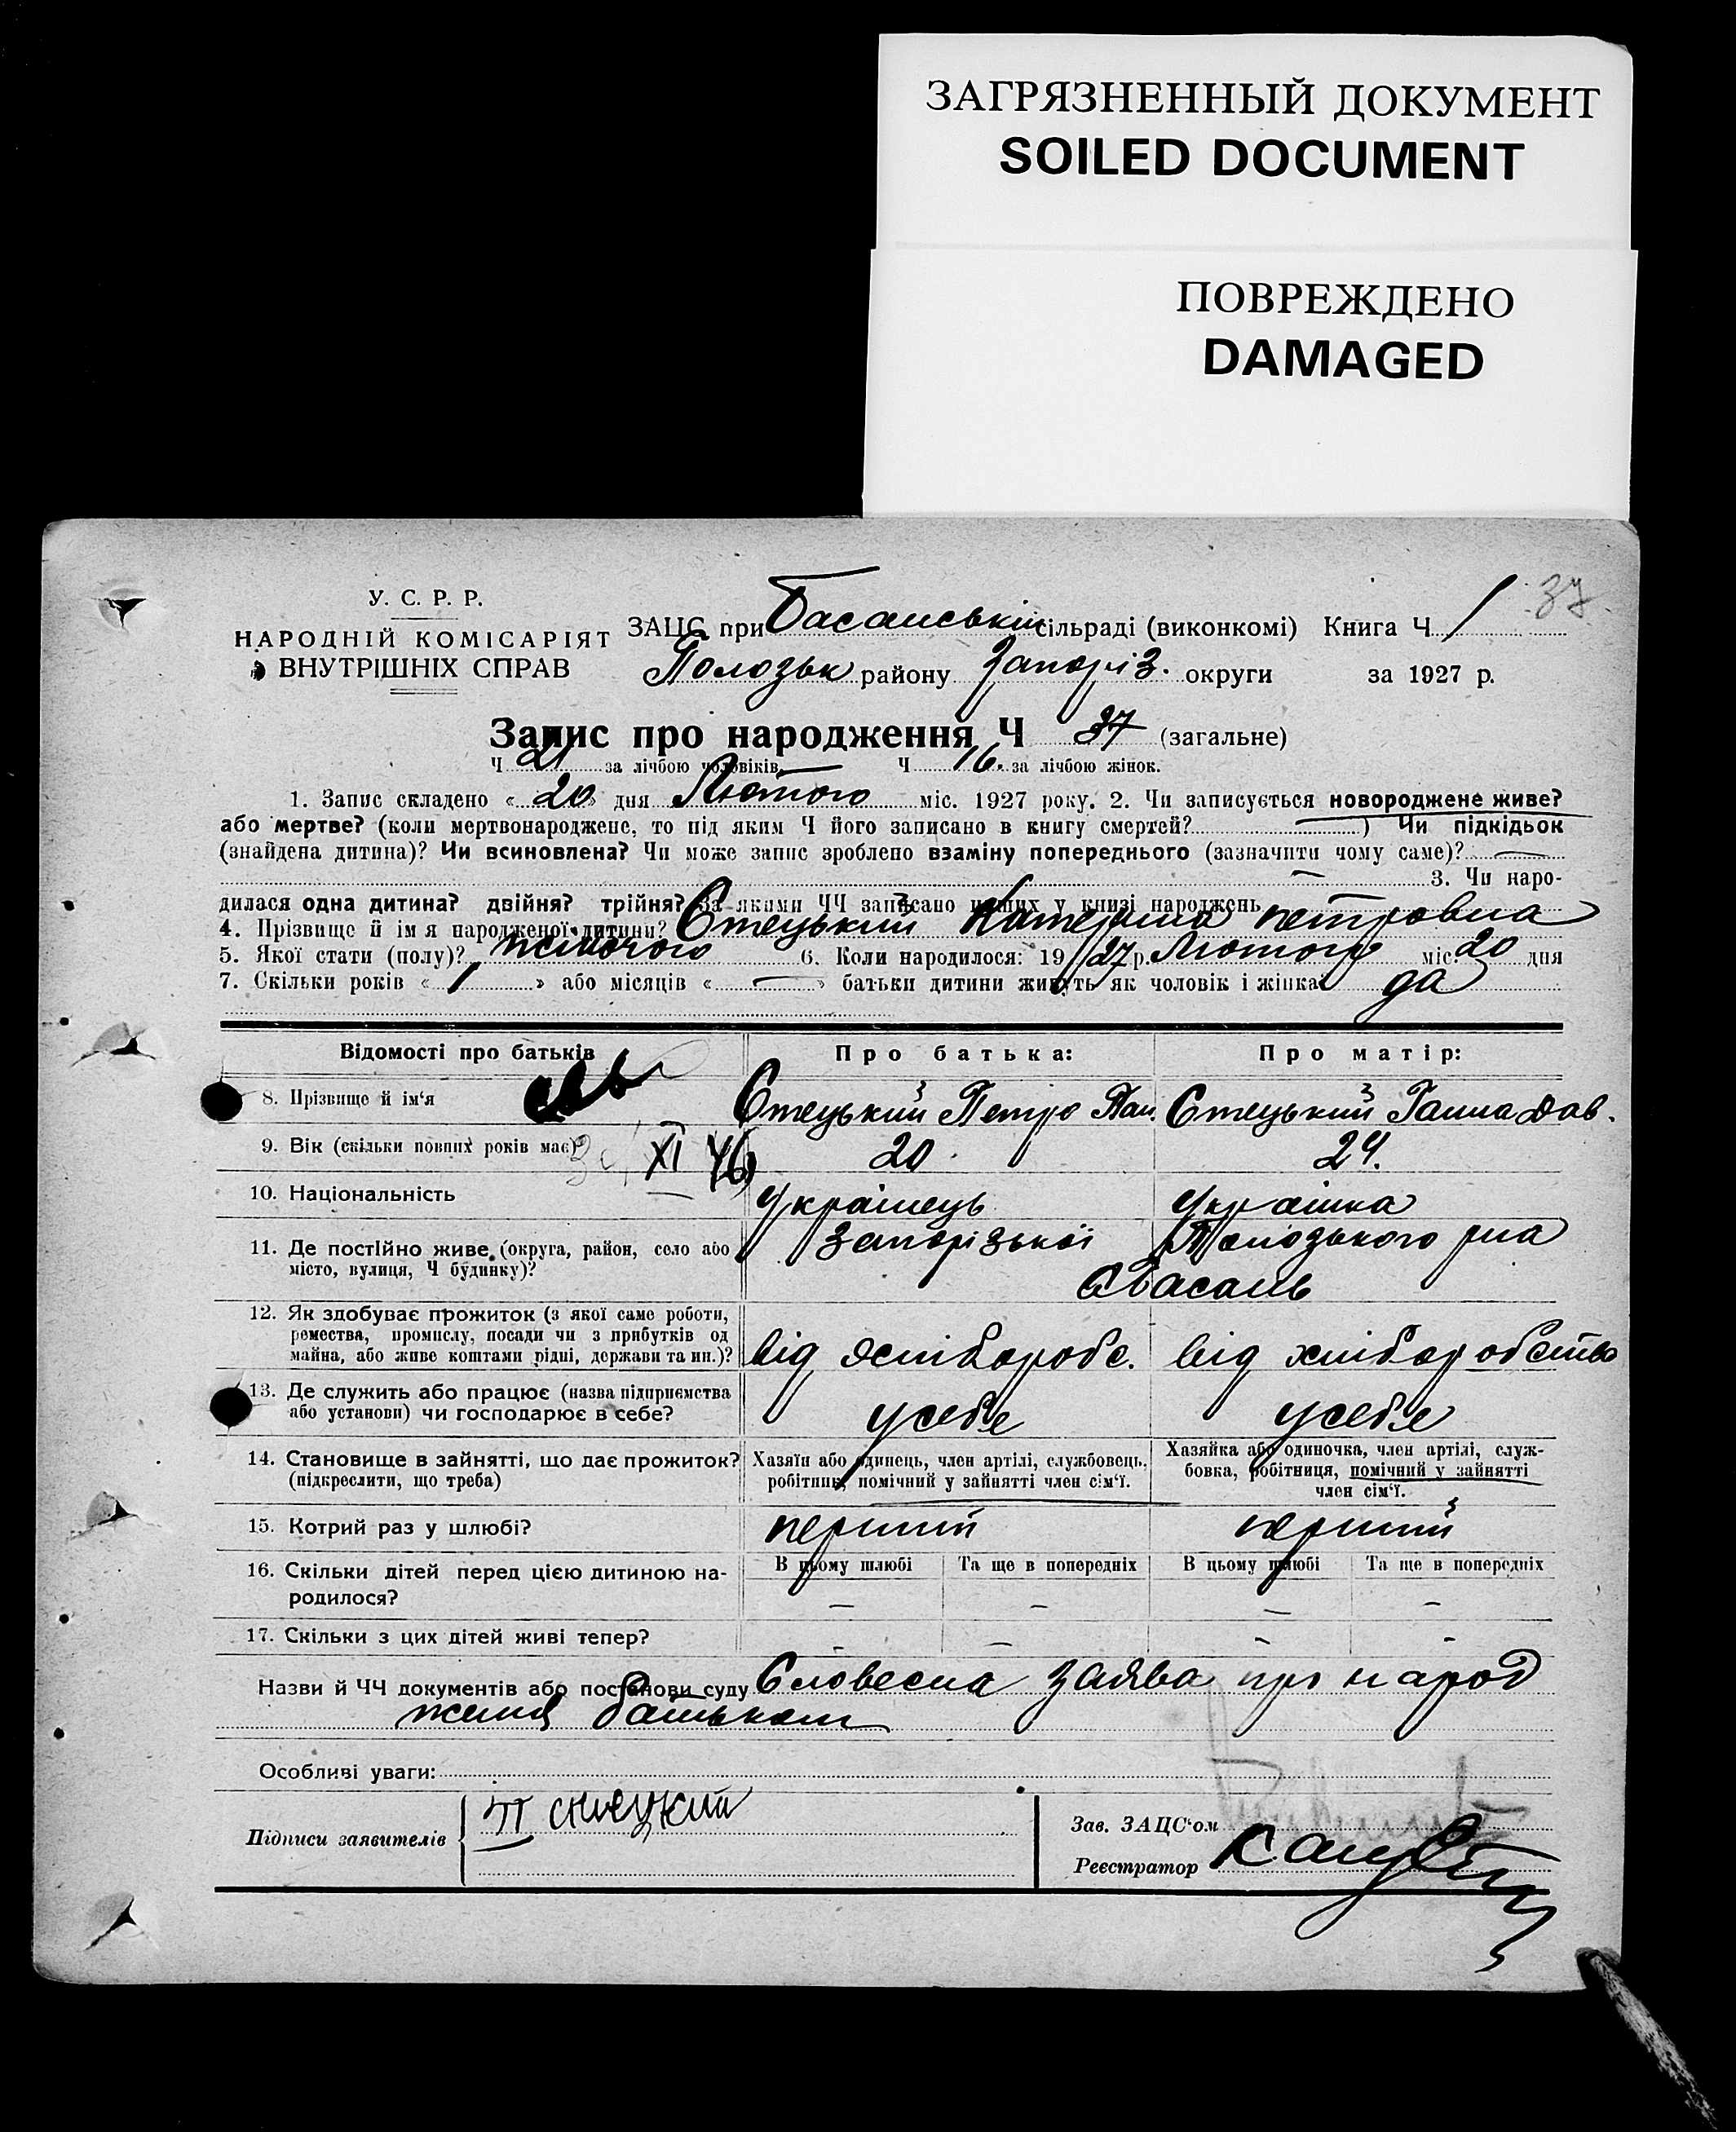 ЗАГРЯЗНЕННЫЙ ДОКУМЕНТ
SOILED DOCUMENT
ПОВРЕЖДЕНО
DAMAGED
37
У. С. Р. Р.
НАРОДНІЙ КОМІСАРІЯТ
ВНУТРІШНІХ СПРАВ
ЗАЦС при Басанській сільраді (виконкомі) Книга Ч 1
Полозьк району Запоріз. округи за 1927 р.
Запис про народження Ч 37 (загальне)
Ч 21 за лічбою чоловіків Ч 16. за лічбою жінок.
1. Запис складено « 20 » дня Лютого міс. 1927 року. 2. Чи записується новороджене живе?
або мертве? (коли мертвонароджене, то під яким Ч його записано в книгу смертей? ) Чи підкідьок
(знайдена дитина)? Чи всиновлена? Чи може запис зроблено взаміну попереднього (зазначити чому саме)? —
— 3. Чи наро-
дилася одна дитина? двійня? трійня? За якими ЧЧ записано інших у книзі народжень
4. Прізвище й ім я народженої дитини? Стецький Катерина петровна
5. Якої стати (полу)? жіночого 6. Коли народилося: 1927 р. Лютого міс. 20 дня
7. Скільки років « 1 » або місяців « — » батьки дитини живуть як чоловік і жінка да
Відомості про батьків Про батька: Про матір:
8. Прізвище й ім‘я Стецький Петро Пан. Стецький Ганна Дав.
9. Вік (скільки повних років має)? XI 46 20 24.
10. Національність Українець Українка
11. Де постійно живе (округа, район, село або Запорізької Полозького рна
місто, вулиця, Ч будинку)? с Басань
12. Як здобуває прожиток (з якої саме роботи,
ремества, промислу, посади чи з прибутків од
майна, або живе коштами рідні, держави та ин.)? від хліборобс. від хліборобство
13. Де служить або працює (назва підприємства
або установи) чи господарює в себе? усебе усебе
14. Становище в зайнятті, що дає прожиток? Хазяїн або одинець, член артілі, службовець, Хазяйка або одиночка, член артілі, служ-
(підкреслити, що треба) робітник, помічний у зайнятті член сім‘ї. бовка, робітниця, помічний у зайнятті
член сім‘ї.
15. Котрий раз у шлюбі? перший перший
16. Скільки дітей перед цією дитиною на- В цьому шлюбі Та ще в попередніх В цьому шлюбі Та ще в попередніх
родилося? — — — —
17. Скільки з цих дітей живі тепер? — — — —
Назви й ЧЧ документів або постанови суду Словесна заява про народ
ження батьком
Особливі уваги:
Підписи заявителів П Стецкий
Зав. ЗАЦС‘ом
Реєстратор